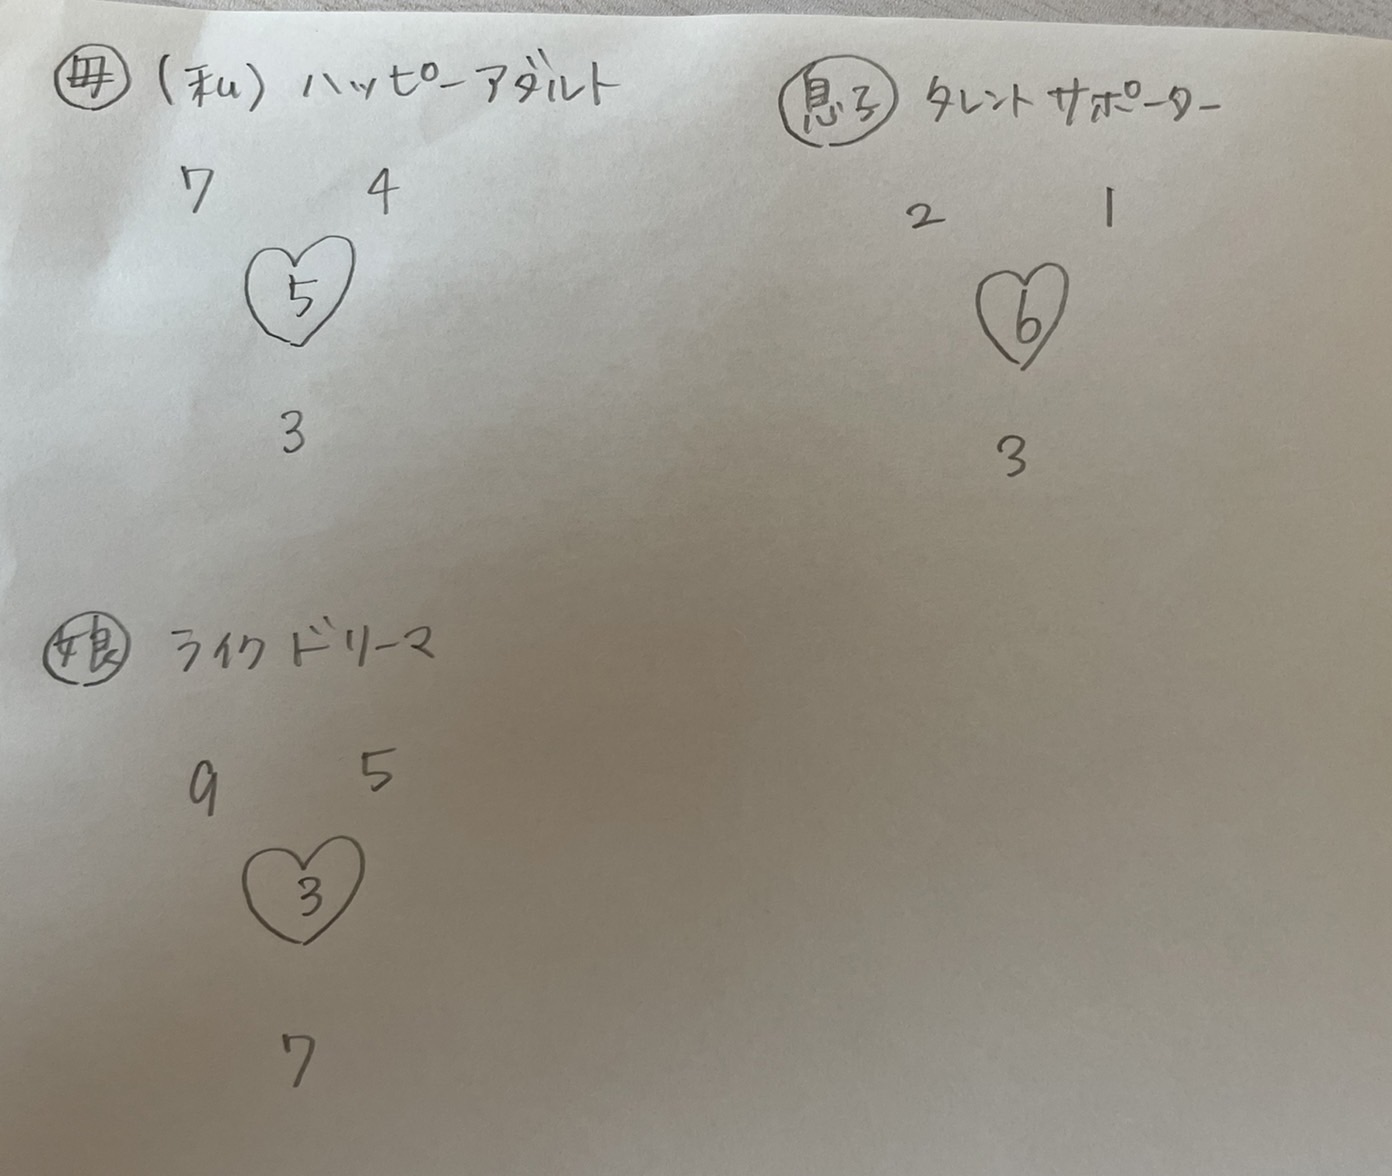 母 (私) ハッピーアダルト
7 4
5
3
息子 タレントサポーター
2 1
6
3
娘 ライクドリーマ
9 5
3
7